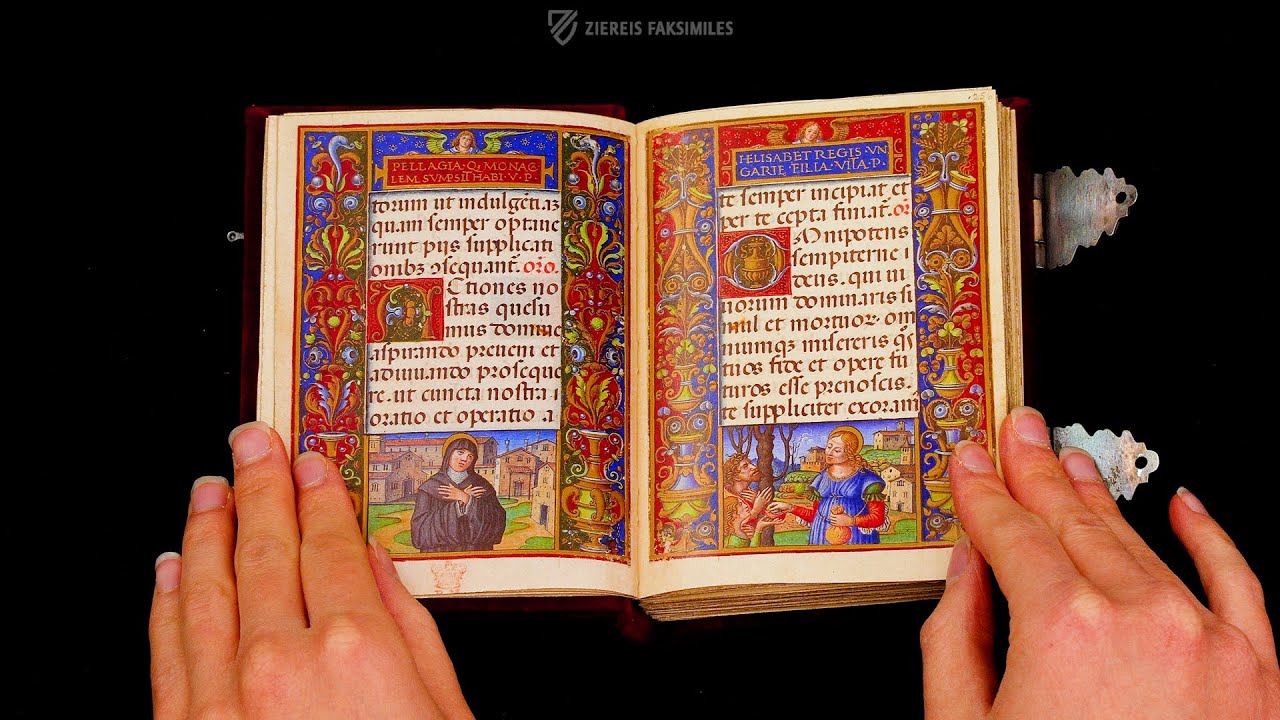 ZIEREIS FAKSIMILES
PELLAGIA · Q · MONAC
LEM SVMPSIT HABI · V · P ·
torum ut indulgētiaz
quam semper optaue
runt pijs supplicati
onibꝫ ↄsequant̄. oro.
ACtiones no
stras quesu
mus domine
aspirando preueni et
adiuuando proseque
re. ut cuncta nostra
oratio et operatio a
125
HELISABET REGIS · VN
GARIE · FILIA · VITA · P ·
te semper incipiat et
per te cepta finiat̄. or̄
OMnipotens
sempiterne
deus. qui ui
uorum dominaris si
mul et mortuoꝝ. om
niumqꝫ misereris qs̄
tuos fide et opere fu
turos esse prenoscis.
te suppliciter exoram